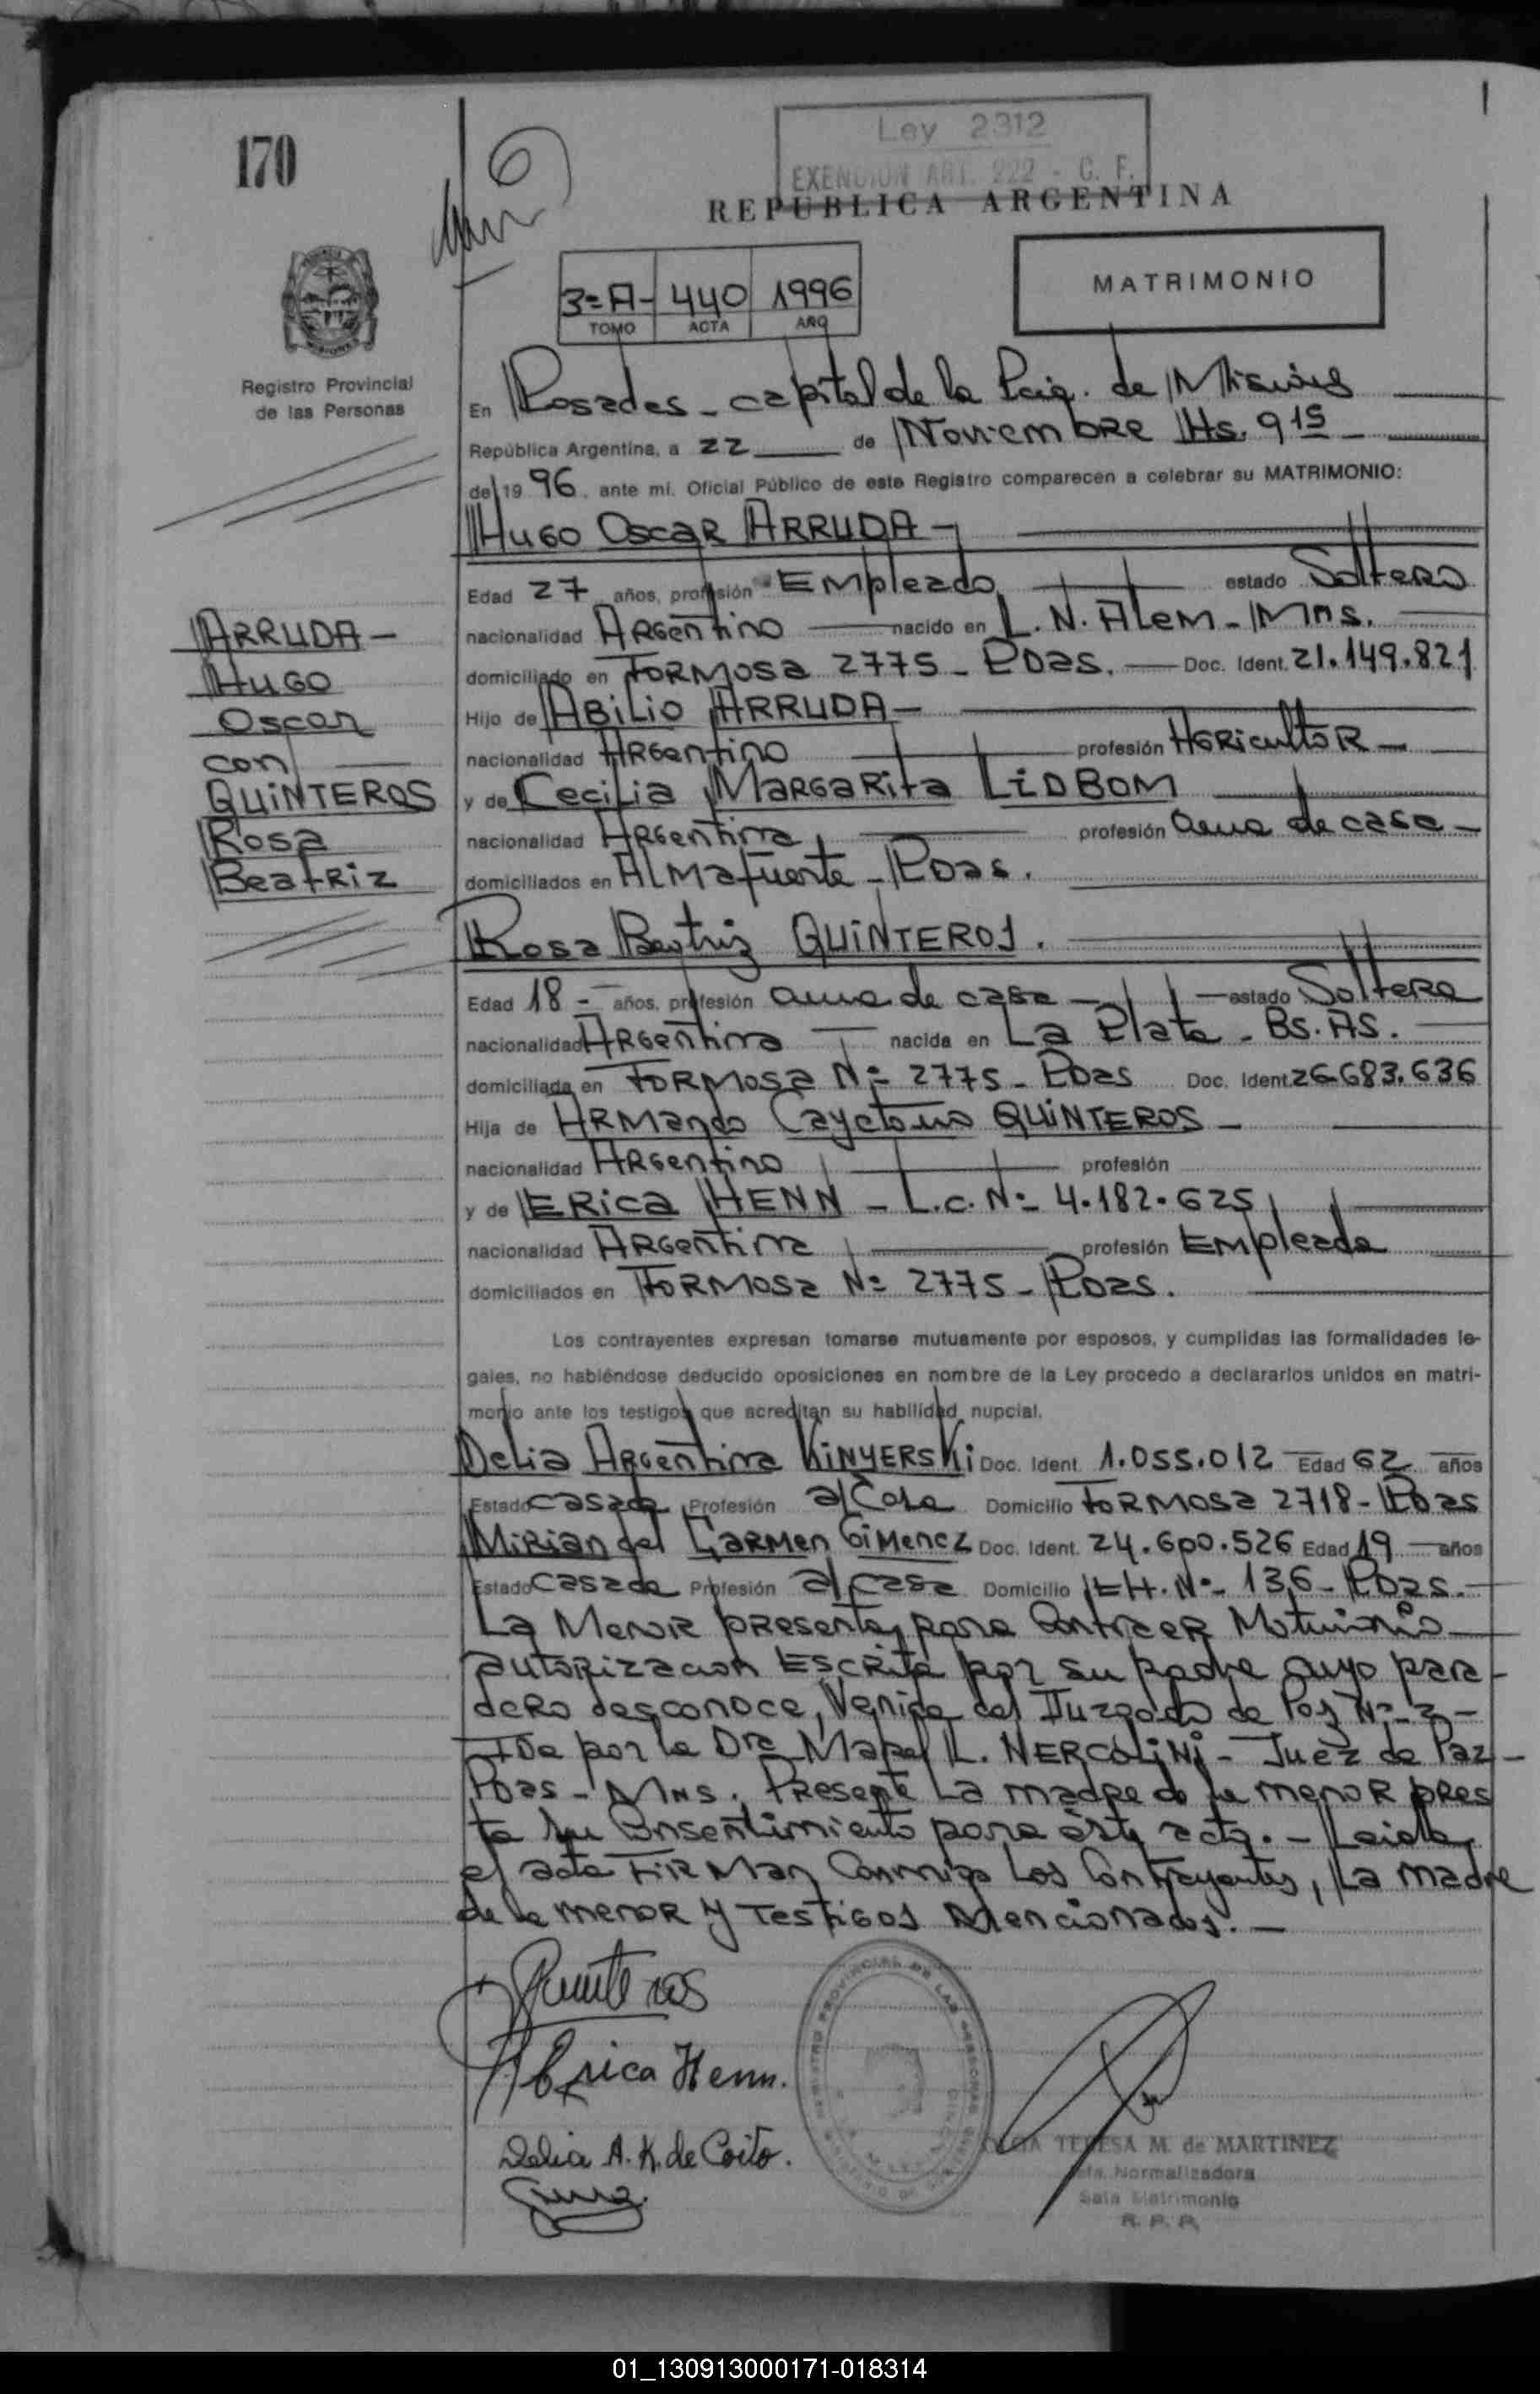 170
Ley 2312
EXENCION ART. 222 - C. F.
REPUBLICA ARGENTINA
MATRIMONIO
3=A- 440 1996
TOMO ACTA AÑO
Registro Provincial
de las Personas
En Posadas - capital de la de Misiones
República Argentina, a 22 de Noviembre Hs. 9 15
de 19 96, ante mí, Oficial Público de este Registro comparecen a celebrar su MATRIMONIO:
HUGO OSCAR ARRUDA -
Edad 27 años, profesión Empleado estado Soltero
nacionalidad Argentino nacido en L. N. Alem - Mns.
domiciliado en Formosa 2775 - Pdas. Doc. Ident. 21.149.821
Hijo de ABILIO ARRUDA -
nacionalidad Argentino profesión Agricultor -
y de Cecilia Margarita LIDBOM
nacionalidad Argentina profesión ama de casa -
domiciliados en Almafuerte - Pdas.
ARRUDA -
HUGO
Oscar
con
QUINTEROS
Rosa
Beatriz
Rosa Beatriz QUINTEROS.
Edad 18 - años, profesión ama de casa - estado Soltera
nacionalidad Argentina nacida en La Plata - Bs. As.
domiciliada en Formosa Nº 2775 - Pdas Doc. Ident. 26.683.636
Hija de Armando Cayetano QUINTEROS -
nacionalidad Argentino profesión
y de ERICA HENN - L.C. Nº 4.182.625
nacionalidad Argentina profesión Empleada
domiciliados en Formosa Nº 2775 - Pdas.
Los contrayentes expresan tomarse mutuamente por esposos, y cumplidas las formalidades le-
gales, no habiéndose deducido oposiciones en nombre de la Ley procedo a declararlos unidos en matri-
monio ante los testigos que acreditan su habilidad nupcial.
Delia Argentina KINYERSKI Doc. Ident. 1.055.012 Edad 62 años
Estado casada Profesión a/casa Domicilio Formosa 2718 - Pdas
Mirian del Carmen Gimenez Doc. Ident. 24.600.526 Edad 19 años
Estado casada Profesión a/casa Domicilio EH. Nº 136 - Pdas. -
La Menor presenta, para contraer Matrimonio
autorizacion Escrita por su padre cuyo para-
dero desconoce, Venida del Juzgado de Paz Nº 2 -
Fda por la Dra Mabel L. NERCOLINI - Juez de Paz -
Pdas - Mns. Presente La madre de la menor pres
ta su consentimiento para este acto. - Leida
el acta Firman Conmigo Los Contrayentes, La madre
de la menor y Testigos Mencionados. -
Quinteros
Erica Henn.
Delia A. K. de Coito.
TERESA M. de MARTINEZ
Normalizadora
Sala Matrimonio
R. P. P.
01_130913000171-018314